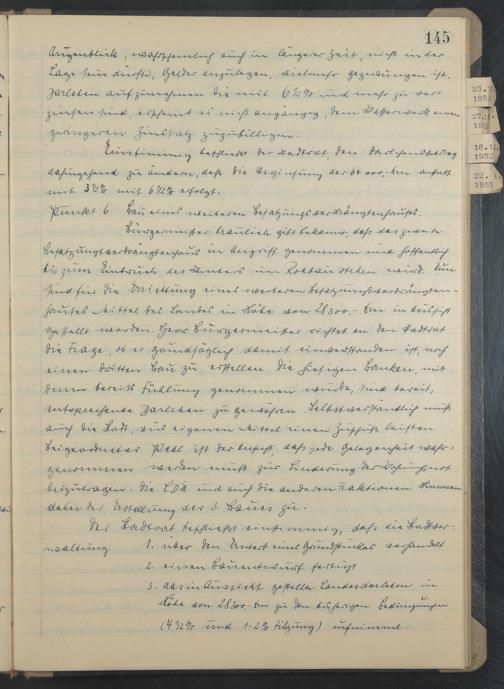 145
Augenblick, wahrscheinlich auch in längerer Zeit, nicht in der
Lage sein dürfte, Gelder anzulegen, vielmehr gezwungen ist,
Darlehen aufzunehmen die mit 6 1/2% und mehr zu ver-
zinsen sind, erscheint es nicht angängig, dem Wasserwerk einen
geringeren Zinssatz zuzubilligen.
Einstimmig beschließt der Stadtrat, den Darlehensvertrag
dahingehend zu ändern, daß die Verzinsung der 64 000,-- DM anstatt
mit 3 1/2% mit 6 1/2% erfolgt.
Punkt 6 Bau eines weiteren Besatzungsverdrängtenhauses.
Bürgermeister gibt bekannt, daß das zweite
Besatzungsverdrängtenhaus in Angriff genommen und hoffentlich
bis zum Eintritt des Winters im Rohbau stehen wird. Nun
sind für die Errichtung eines weiteren Besatzungsverdrängten-
hauses Mittel des Landes in Höhe von 28 500.- DM in Aussicht
gestellt worden. Herr Bürgermeister richtet an den Stadtrat
die Frage, ob er grundsätzlich damit einverstanden ist, noch
einen dritten Bau zu erstellen. Die hiesigen Banken, mit
denen bereits Fühlung genommen wurde, sind bereit,
entsprechende Darlehen zu gewähren. Selbstverständlich muß
auch die Stadt, aus eigenen Mitteln einen Zuschuß leisten.
Beigeordneter ist der Ansicht, daß jede Gelegenheit wahr-
genommen werden muß zur Linderung der Wohnungsnot
beizutragen. Die CDU und auch die anderen Fraktionen stimmen
daher der Erstellung des 3. Baues zu.
Der Stadtrat beschließt einstimmig, daß die Stadtver-
waltung 1. über den Erwerb eines Grundstückes verhandelt
2. einen Bauentwurf fertigt
3. das in Aussicht gestellte Landesdarlehen in
Höhe von 28 500.- DM zu den bisherigen Bedingungen
(4 1/2% und 1-2% Tilgung) aufnimmt.
18.12.
1952
1953